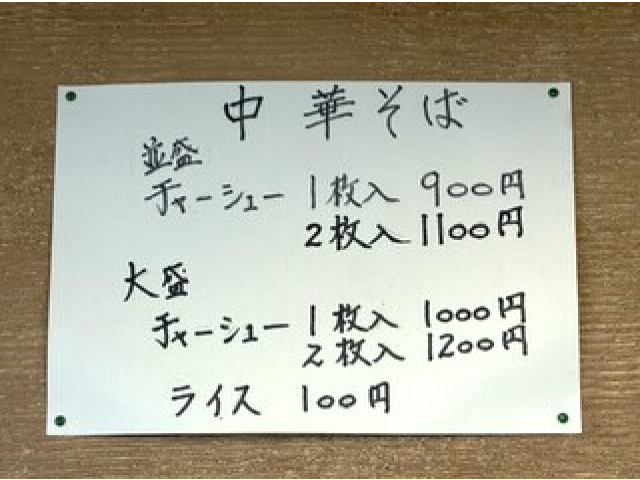 中華そば
並盛
チャーシュー 1枚入 900円
2枚入 1100円
大盛
チャーシュー 1枚入 1000円
2枚入 1200円
ライス 100円